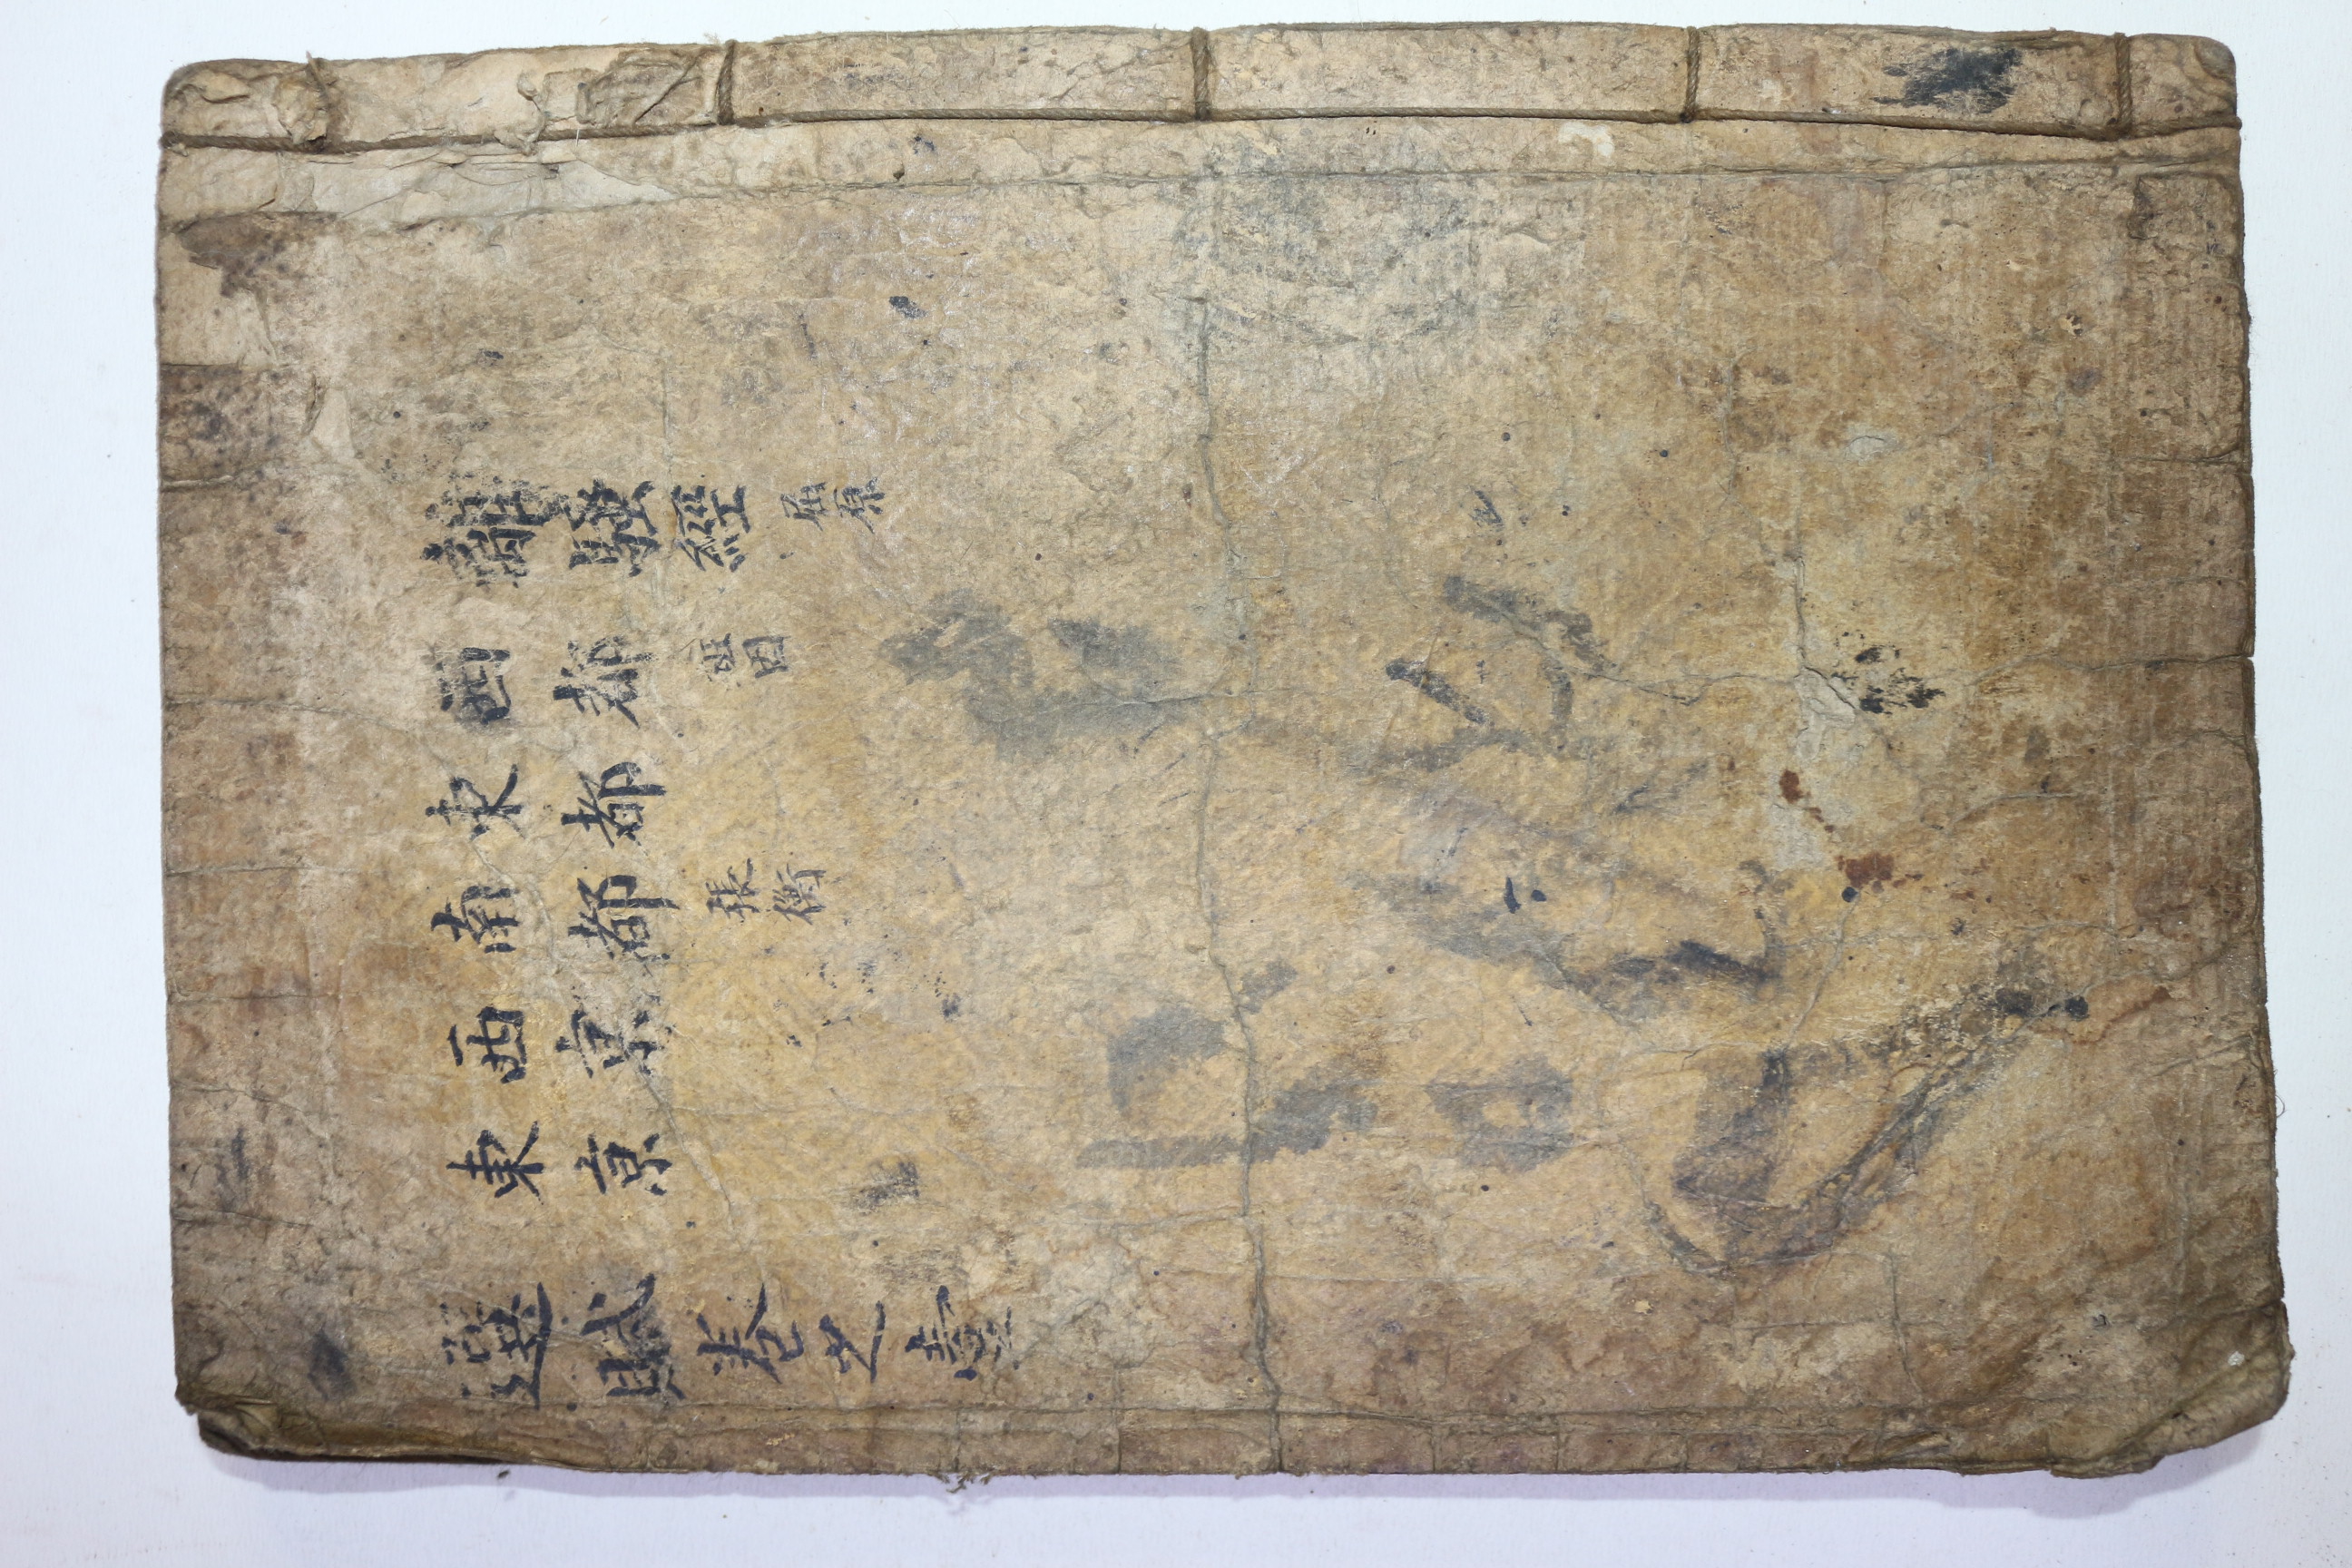 離騷經 屈原
西都 班固
東都
南都 張衡
西京
東京
選賦卷之壹